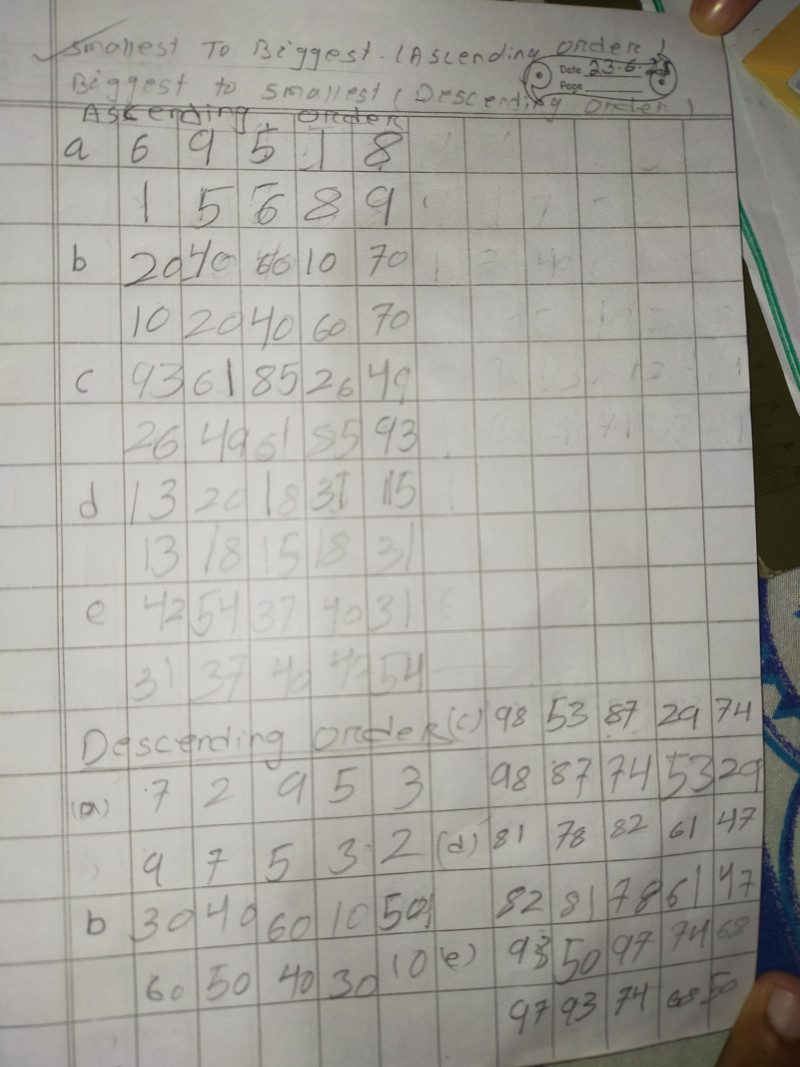 Smallest To Biggest. (Ascending order)
Date 23.6.25
Page
Biggest to smallest (Descending order)
Ascending order
a 6 9 5 1 8
1 5 6 8 9
b 20 40 60 10 70
10 20 40 60 70
c 93 61 85 26 49
26 49 61 85 93
d 13 20 18 31 15
13 18 15 18 31
e 42 54 37 40 31
31 37 40 42 54
Descending order
(a) 7 2 9 5 3
9 7 5 3 2
b 30 40 60 10 50
60 50 40 30 10
(c) 98 53 87 29 74
98 87 74 53 29
(d) 81 78 82 61 47
82 81 78 61 47
(e) 93 50 97 74 68
97 93 74 68 50